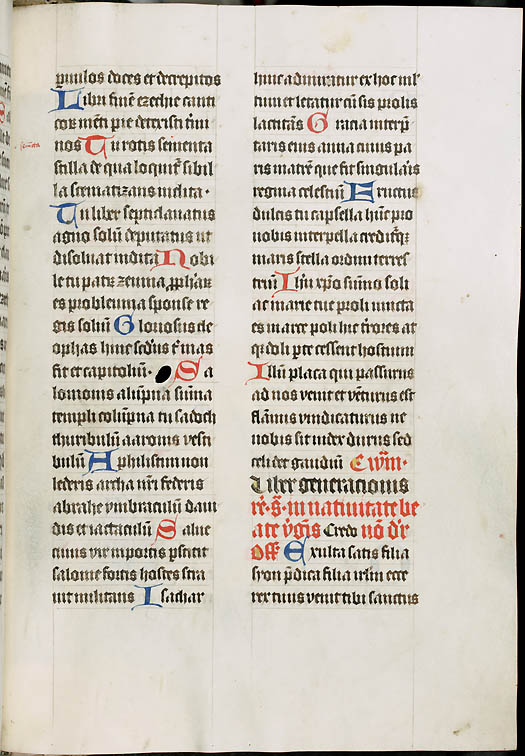 pauilos doces et decrepitos
Libri sūme ezechie canti
cor mēti pie detersa t'mi
nos Tu rotis sciuenta
stilla de qua loquit' sibil
la scematizans indita ·
Tu liber septiclauatus
agno solū deputatus ut
disoluat indita Nobi
le tu patrē zeuma, pphār
es probleuma sponse re
gis soliū Gloriosus cle
ophas huic sedus t' mas
fit et capitoliū · Sa
lomonis alīspina sūma
templi colūpna tu sadoch
thuribulū aaronis vesti
bulū A philistim non
lederis archa nr̄i federis
abrahe umbraculū daui
dis et iactaculū Salue
cuius vir inportis pscīit
salome fortis hostes stra
uit militans Isachar
huic admiratur ex hoc ml'
tum et letatur cū sis prolis
lactitās Gracia interp̄
taris eius anna cuius pa
ris matrē que fit singularis
regina celestiū Eructus
dulcis tu capsella hūc pro
nobis interpella creditq3
maris stella ordini terres
triū Ih'u xp̄o sūmo soli
ac marie tue proli iuncta
es in arce poli hic t'rores at
q3 doli p̄te cessent hostium
Illū placa qui passurus
ad nos venit et vēturus est
flāmis vindicaturus ne
nobis sit iudex durus sed
celi det gaudiū Ewm̄ ·
Liber generationis
re. s. in natiuitate be
ate v̄gis Credo nō d'r
Off Exulta satis filia
syon p̄dica filia irlm ecce
rex tuus venit tibi sanctus